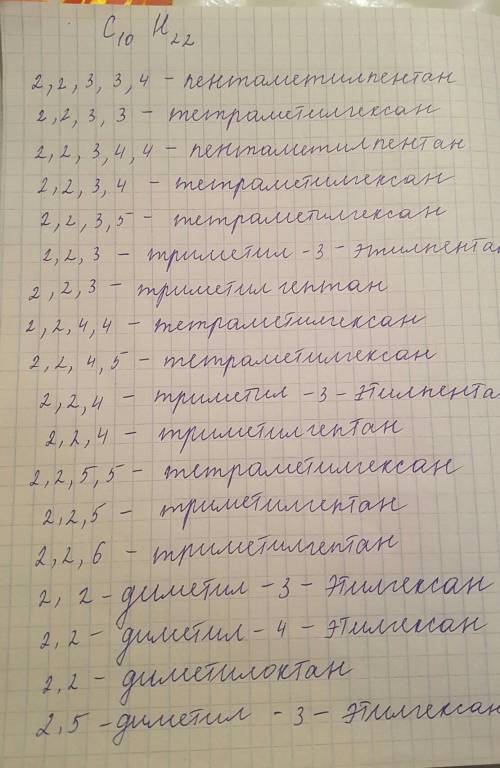 C10 H22
2,2,3,3,4 - пентаметилпентан
2,2,3,3 - тетраметилгексан
2,2,3,4,4 - пентаметилпентан
2,2,3,4 - тетраметилгексан
2,2,3,5 - тетраметилгексан
2,2,3 - триметил - 3 - этилпентан
2,2,3 - триметилгептан
2,2,4,4 - тетраметилгексан
2,2,4,5 - тетраметилгексан
2,2,4 - триметил - 3 - этилпента
2,2,4 - триметилгептан
2,2,5,5 - тетраметилгексан
2,2,5 - триметилгептан
2,2,6 - триметилгептан
2,2 - диметил - 3 - этилгексан
2,2 - диметил - 4 - этилгексан
2,2 - диметилоктан
2,5 - диметил - 3 - этилгексан